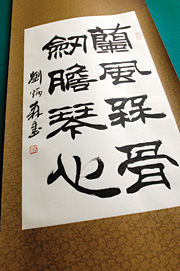 蘭風槑骨
劒膽琴心
劉炳森書